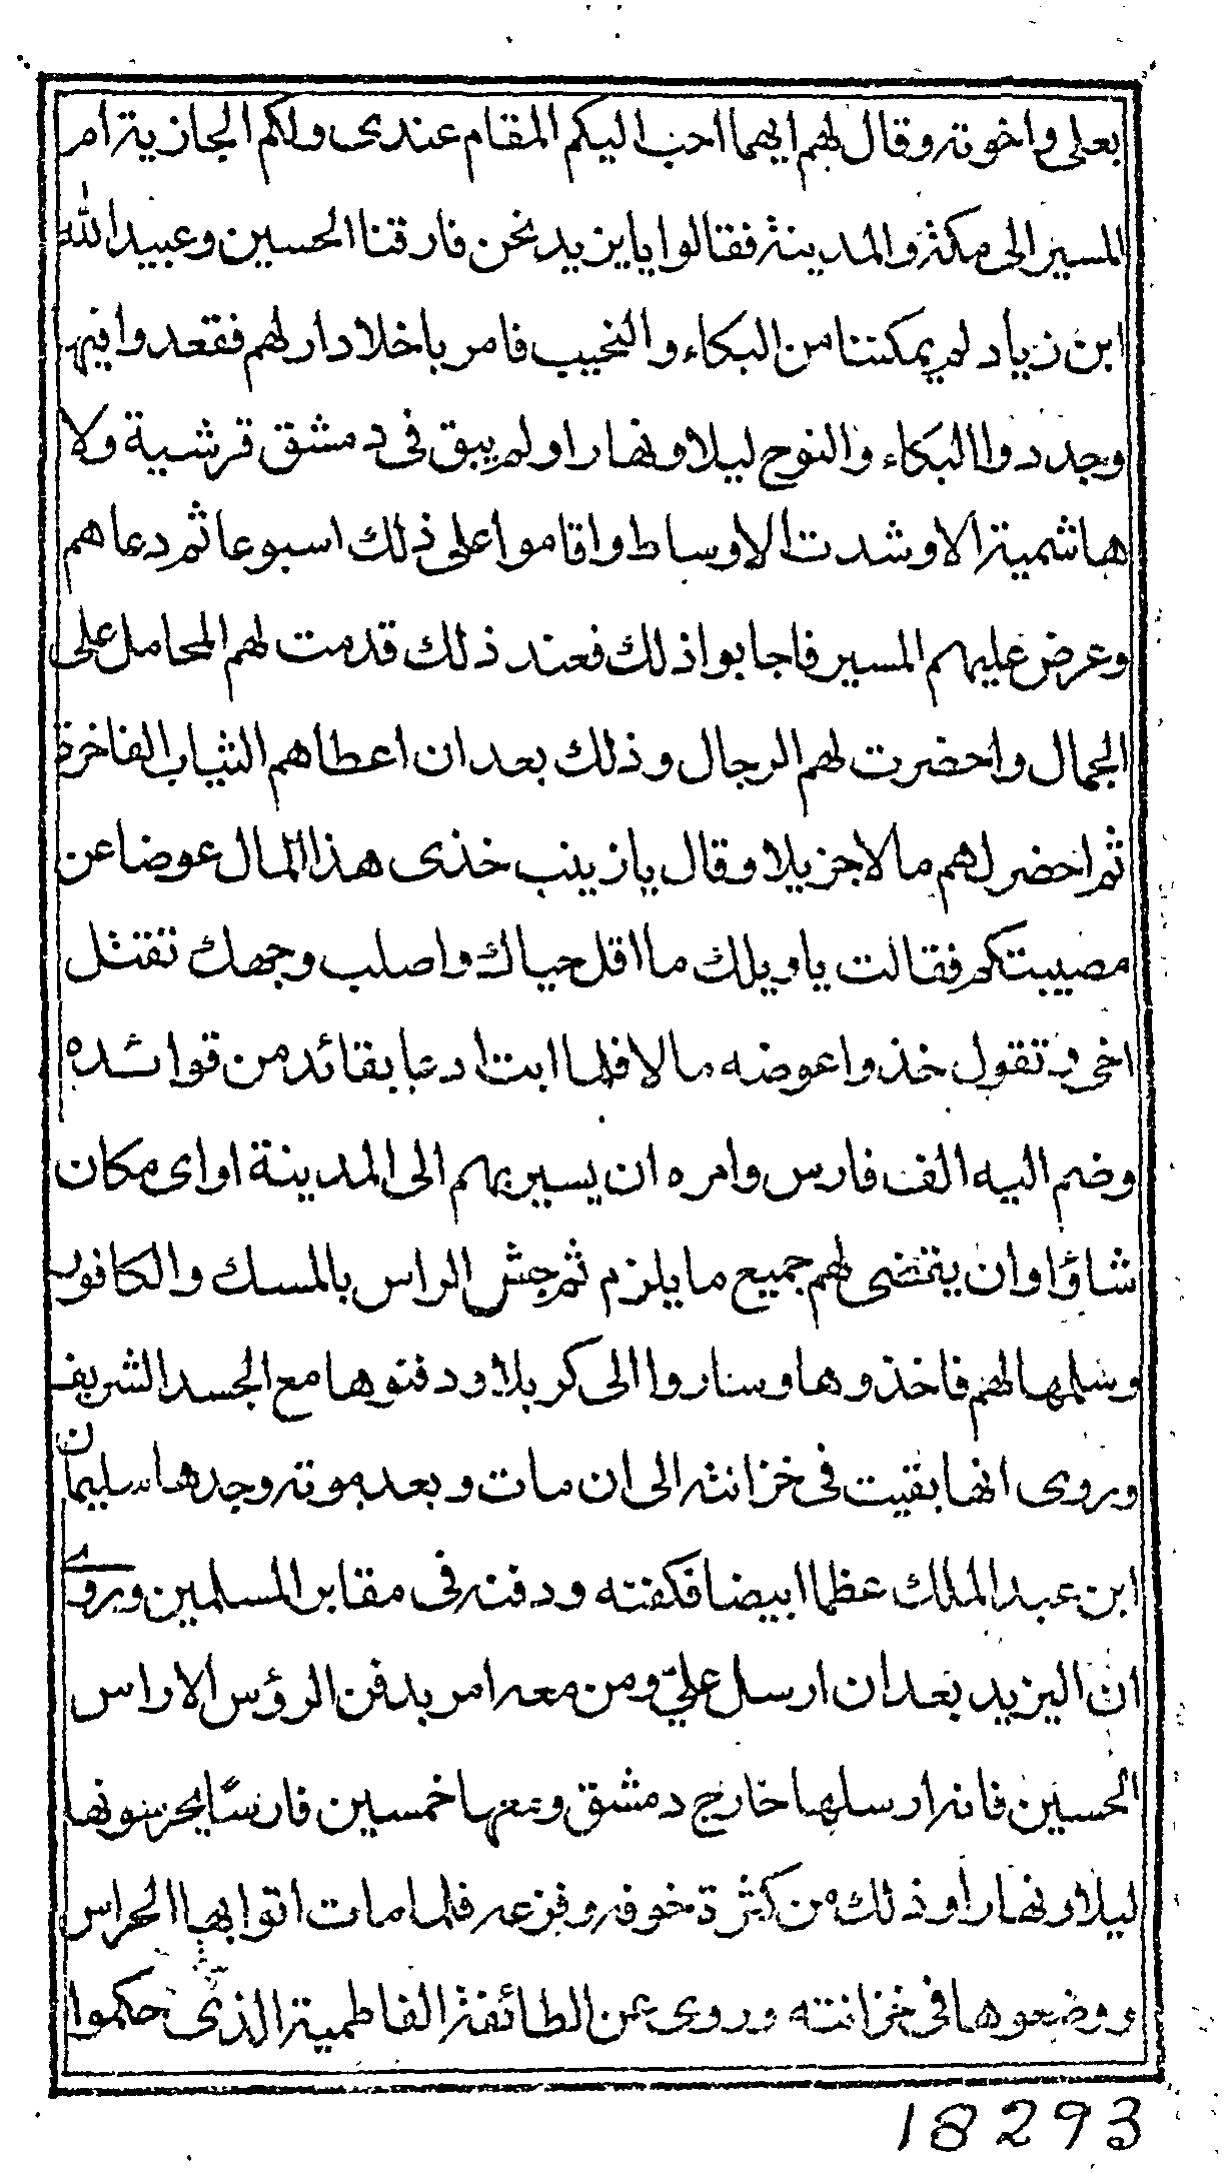 بعلى واخوته وقال لهم ايهما احب اليكم المقام عندى ولكم الجازية ام
المسير الى مكة والمدينة فقالوا يا يزيد نحن فارقنا الحسين وعبيد الله
ابن زياد لم يمكننا من البكاء والنحيب فامر باخلا دار لهم فقعدوا فيها
وجددوا البكاء والنوح ليلا ونهارا ولم يبق فى دمشق قرشية ولا
هاشمية الا وشدت الاوساط واقاموا على ذلك اسبوعا ثم دعاهم
وعرض عليهم المسير فاجابوا ذلك فعند ذلك قدمت لهم المحامل على
الجمال واحضرت لهم الرجال وذلك بعد ان اعطاهم الثياب الفاخرة
ثم احضر لهم مالا جزيلا وقال يا زينب خذى هذا المال عوضا عن
مصيبتكم فقالت يا ويلك ما اقل حياك واصلب وجهك تقتل
اخى وتقول خذوا عوضه مالا فلما ابت ادعا بقائد من قوائده
وضم اليه الف فارس وامره ان يسير بهم الى المدينة او اى مكان
شاؤا وان يتقضى لهم جميع ما يلزم ثم حش الراس بالمسك والكافور
وسلمها لهم فاخذوها وساروا الى كربلا ودفنوها مع الجسد الشريف
وروى انها بقيت فى خزانته الى ان مات وبعد موته وجدها سليمان
ابن عبد الملك عظما ابيضا فكفنه ودفنه فى مقابر المسلمين وروى
ان اليزيد بعد ان ارسل علىّ ومن معه امر بدفن الرؤس الا راس
الحسين فانه ارسلها خارج دمشق ومعها خمسين فارسًا يحرسونها
ليلا ونهارا وذلك من كثرة خوفه وفزعه فلما مات اتوا بها الحراس
ووضعوها فى خزانته وروى عن الطائفة الفاطمية الذى حكموا
18293